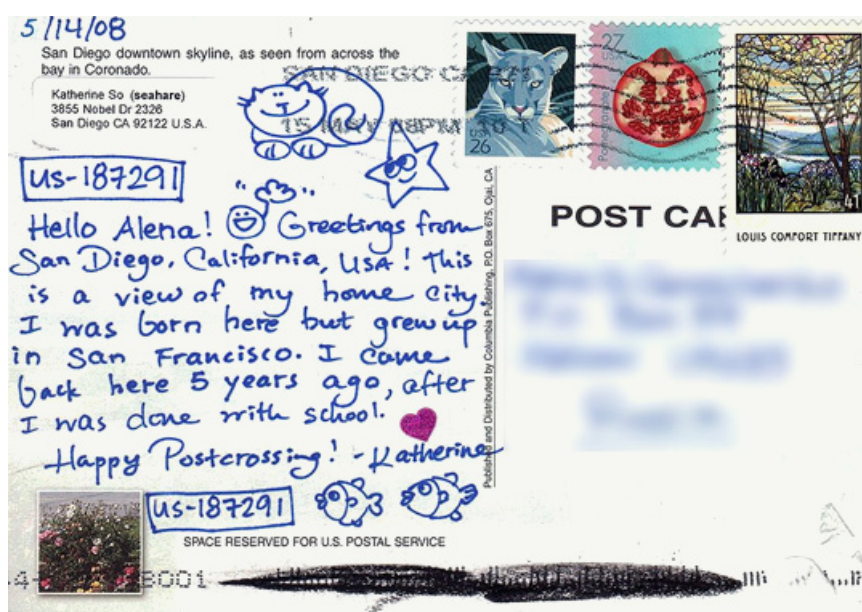 5/14/08
San Diego downtown skyline, as seen from across the
bay in Coronado.
Katherine So (seahare)
3855 Nobel Dr 2326
San Diego CA 92122 U.S.A.
SAN DIEGO CA 921
15 MAY 08PM 10 1
US-187291
Hello Alena! Greetings from
San Diego, California, USA! This
is a view of my home city.
I was born here but grew up
in San Francisco. I came
back here 5 years ago, after
I was done with school.
Happy Postcrossing! - Katherine
US-187291
SPACE RESERVED FOR U.S. POSTAL SERVICE
8001
Published and Distributed by Columbia Publishing, P.O. Box 675, Ojai, CA
USA
26
27
USA
Pomegranate
41
LOUIS COMFORT TIFFANY
POST CA